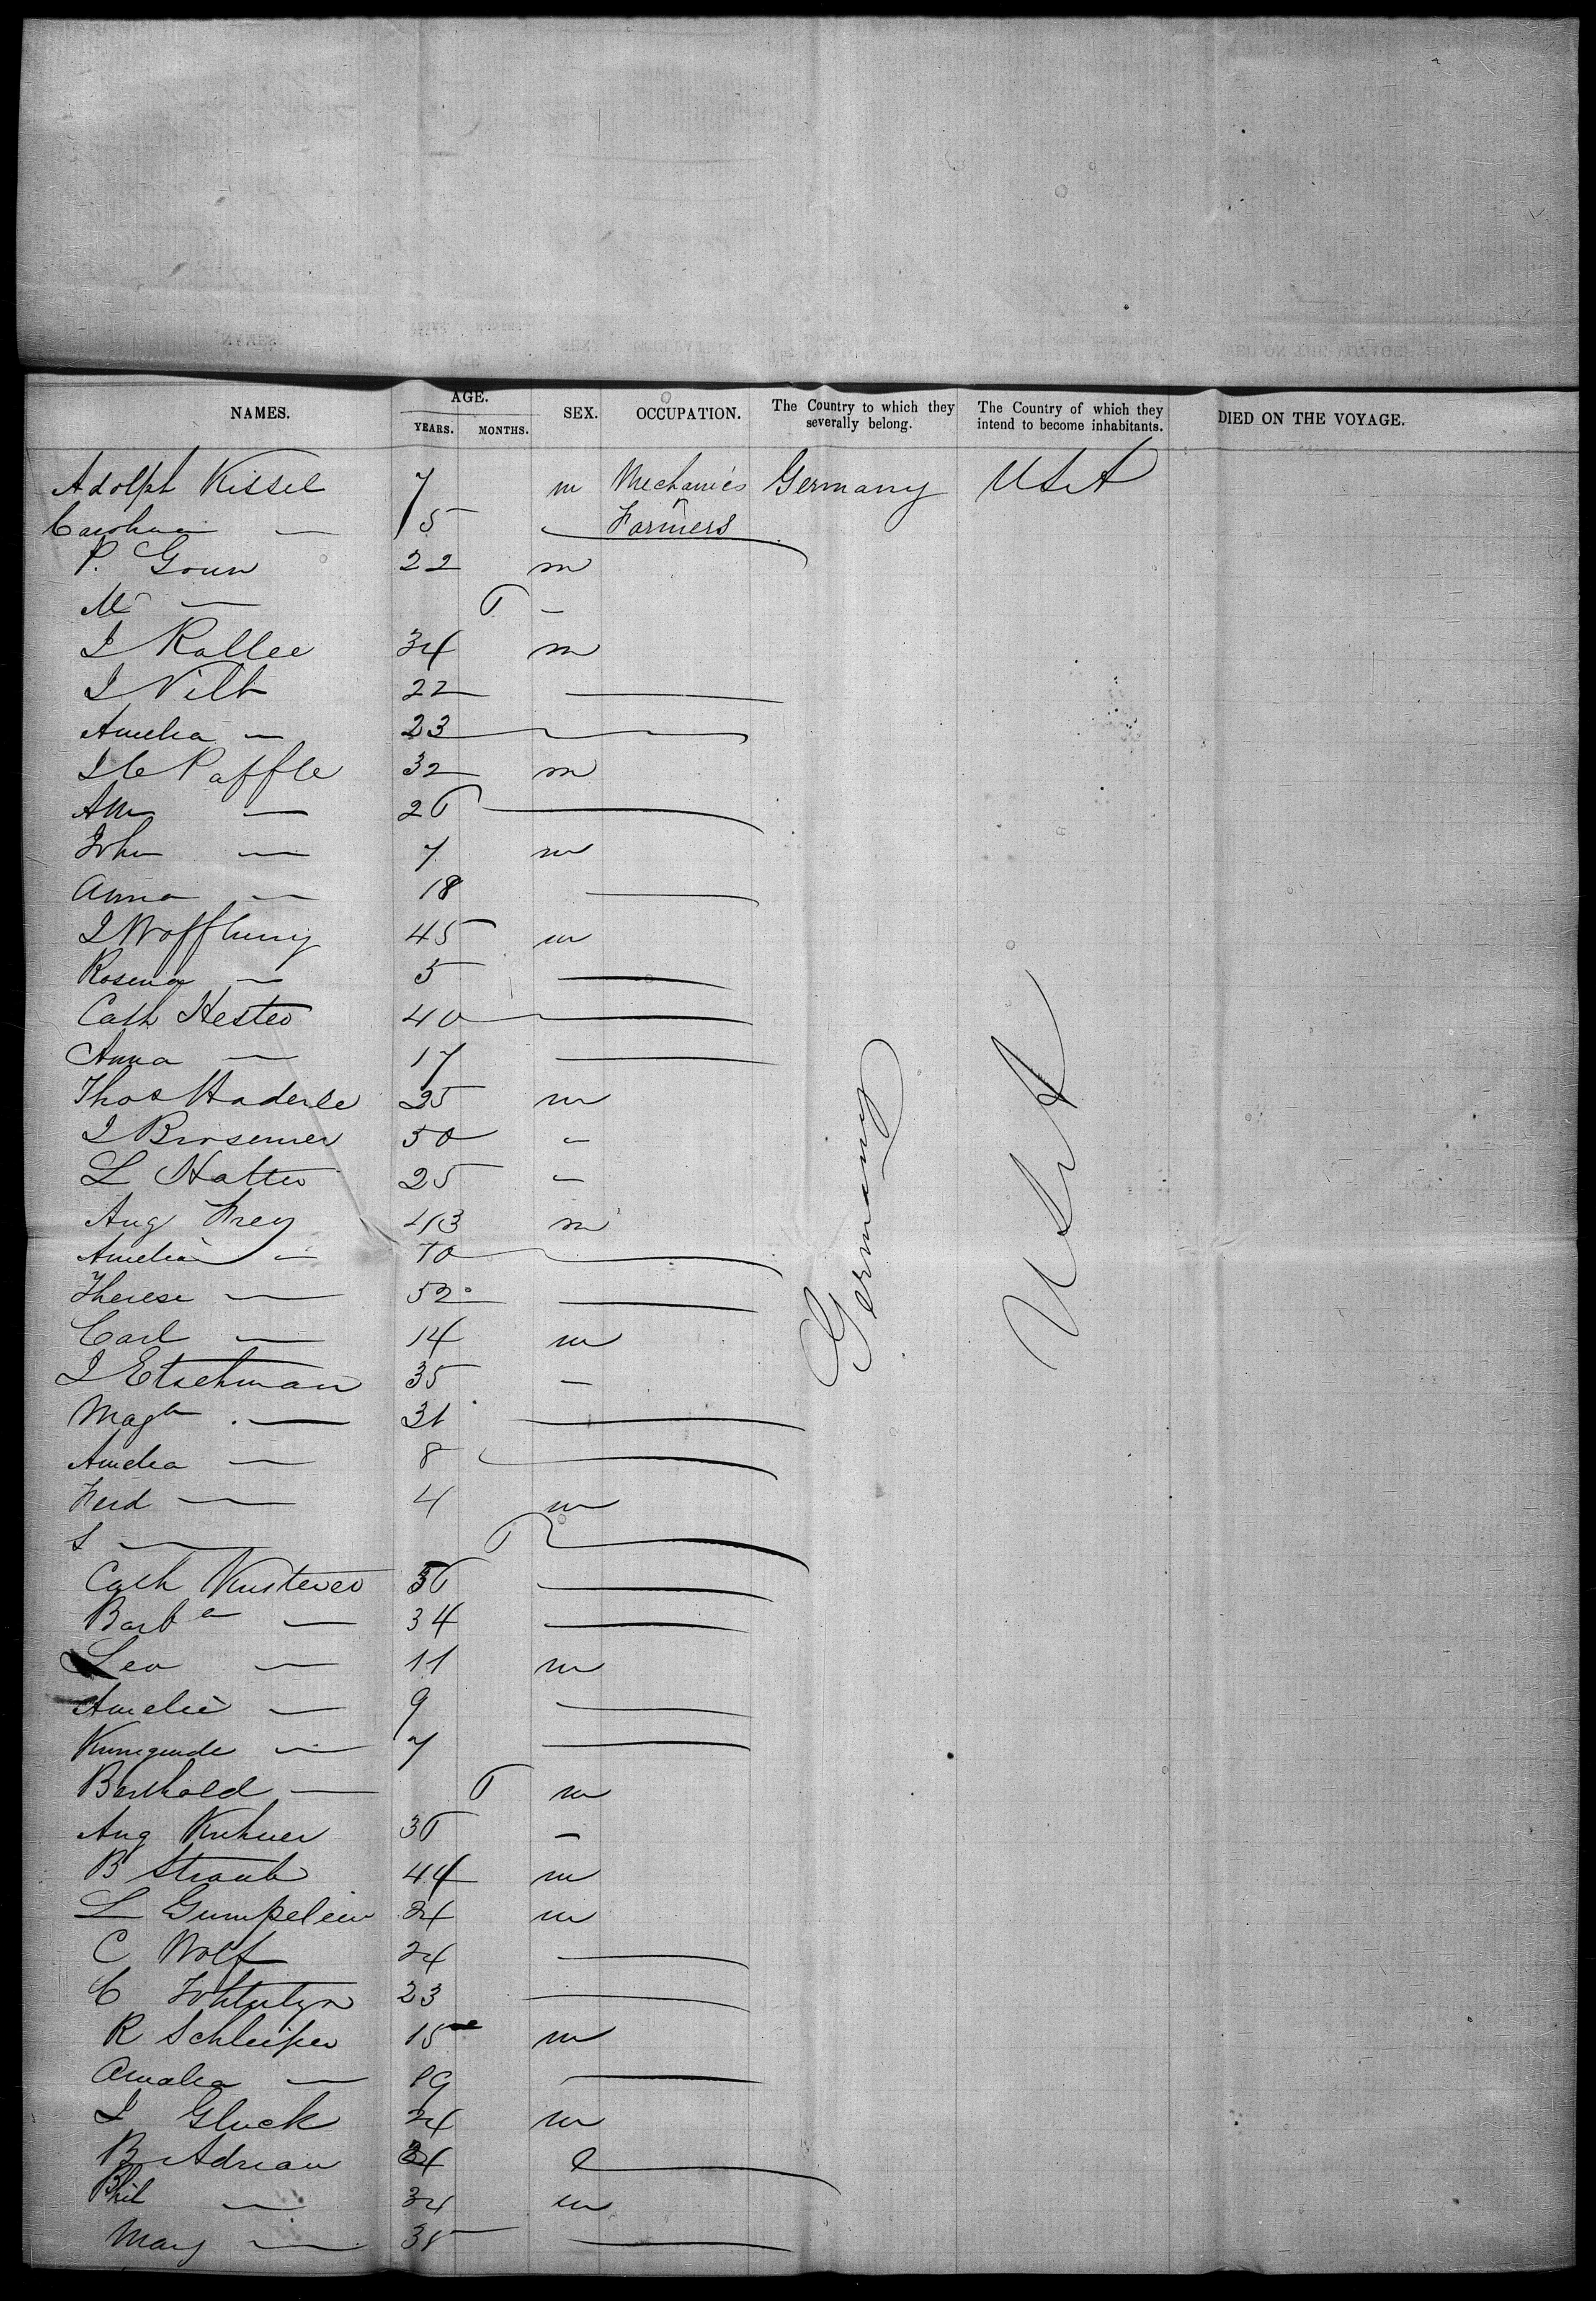 NAMES. AGE. YEARS. MONTHS. SEX. OCCUPATION. The Country to which they severally belong. The Country of which they intend to become inhabitants. DIED ON THE VOYAGE.
Adolph Kissel 7 m Mechanics Germany USA
5 Farmers
P. Goun 22 m
M — 6 –
I Kallee 34 m
I Vilt 22 —
Amelia — 23 —
32 m
— 26 —
John — 7 m
Anna — 18 —
45 m
Rosina — 5 —
Cath Hester 40 —
Anna — 17 —
Thos Haderle 25 m
I Brosemer 50 –
L Hatter 25 –
Aug Frey 43 m
Amelia — —
Therese — 52 —
Carl — 14 m
I Etschman 35 –
Magᵃ — 31 —
Amelia — 8 —
Ferd — 4 m
S — 6 —
Cath 36 —
Barbᵃ — 34 —
Leo — 11 m
Amelie — 9 —
Kunigunde — 7 —
Berthold — 6 m
Aug Kuhner 36 –
B Straub 44 m
L Gumpelein 24 m
C Wolf 24 —
C 23 —
R Schleiper 15 m
Amalia — 19 —
I Gluck 24 m
B Adrian 24 —
Phil — 34 m
Mary — 38 —
Germany
USA